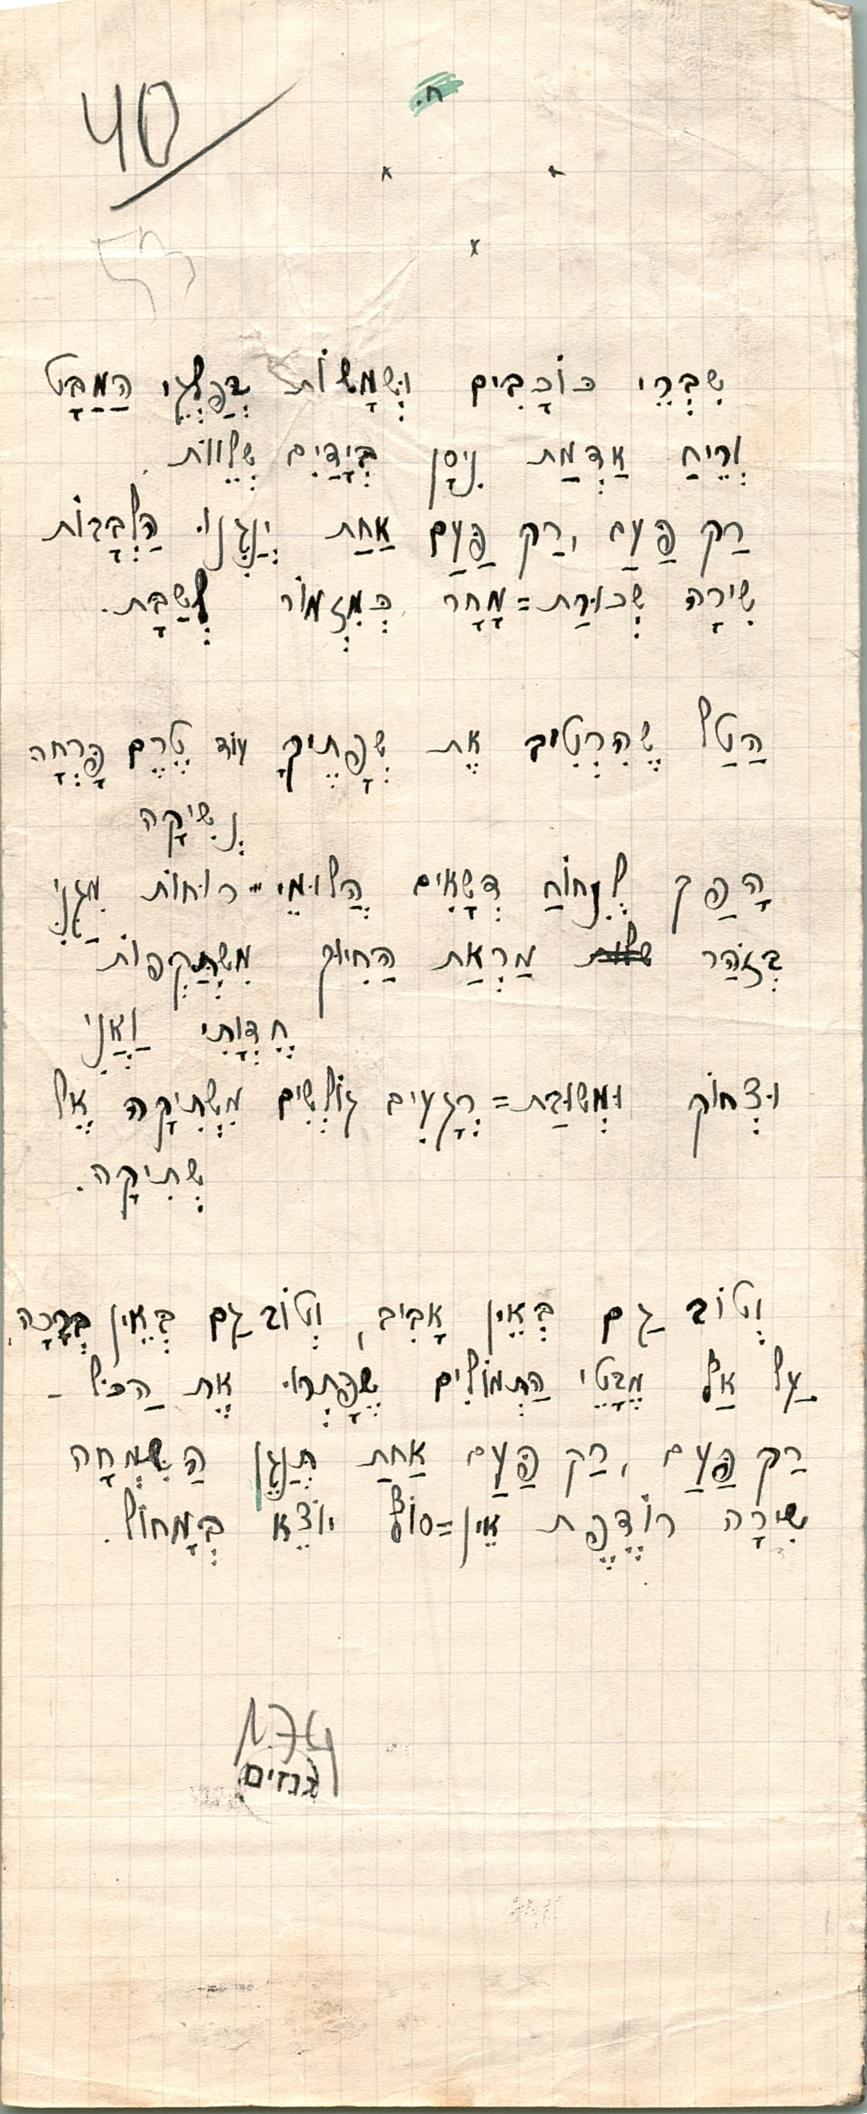 40
ח.
x x
x
שִׁבְרֵי כּוֹכָבִים וּשְׁמָשׁוֹת בְּפַלְגֵי הַמַּבָּט
וְרֵיחַ אַדְמַת נִיסָן בְּיָדַיִם שְׁלֵווֹת.
רַק פַּעַם, רַק פַּעַם אַחַת יְנַגְּנוּ הַלְּבָבוֹת
שִׁירָה שְׁכוּרַת=מָחָר כְּמִזְמוֹר לְשַׁבָּת.
הַטַּל שֶׁהִרְטִיב אֶת שְׂפָתֶיךָ עוֹד טֶרֶם פָּרְחָה
נְשִׁיקָה
הָפַךְ לְנִחוֹחַ דְּשָׁאִים הֲלוּמֵי=רוּחוֹת מִגַּנִּי
בְּזֹהַר מַרְאַת הַחִיּוּךְ מִשְׁתַּקְּפוֹת
חֶדְוָתִי וַאֲנִי
וּצְחוֹק וּמְשׁוּבַת=רְגָעִים גּוֹלְשִׁים מִשְּׁתִיקָה אֶל
שְׁתִיקָה.
וְטוֹב גַּם בְּאֵין אָבִיב, וְטוֹב גַּם בְּאֵין בְּרָכָה,
עַל אַל מֶבָּטֵי הַתְּמוֹלִים שֶׁפָּתְרוּ אֶת הַכֹּל –
רַק פַּעַם, רַק פַּעַם אַחַת תְּנַגֵּן הַשִּׂמְחָה
שִׁירָה רוֹדֶפֶת אֵין=סוֹף יוֹצֵא בְּמָחוֹל.
174
גנזים